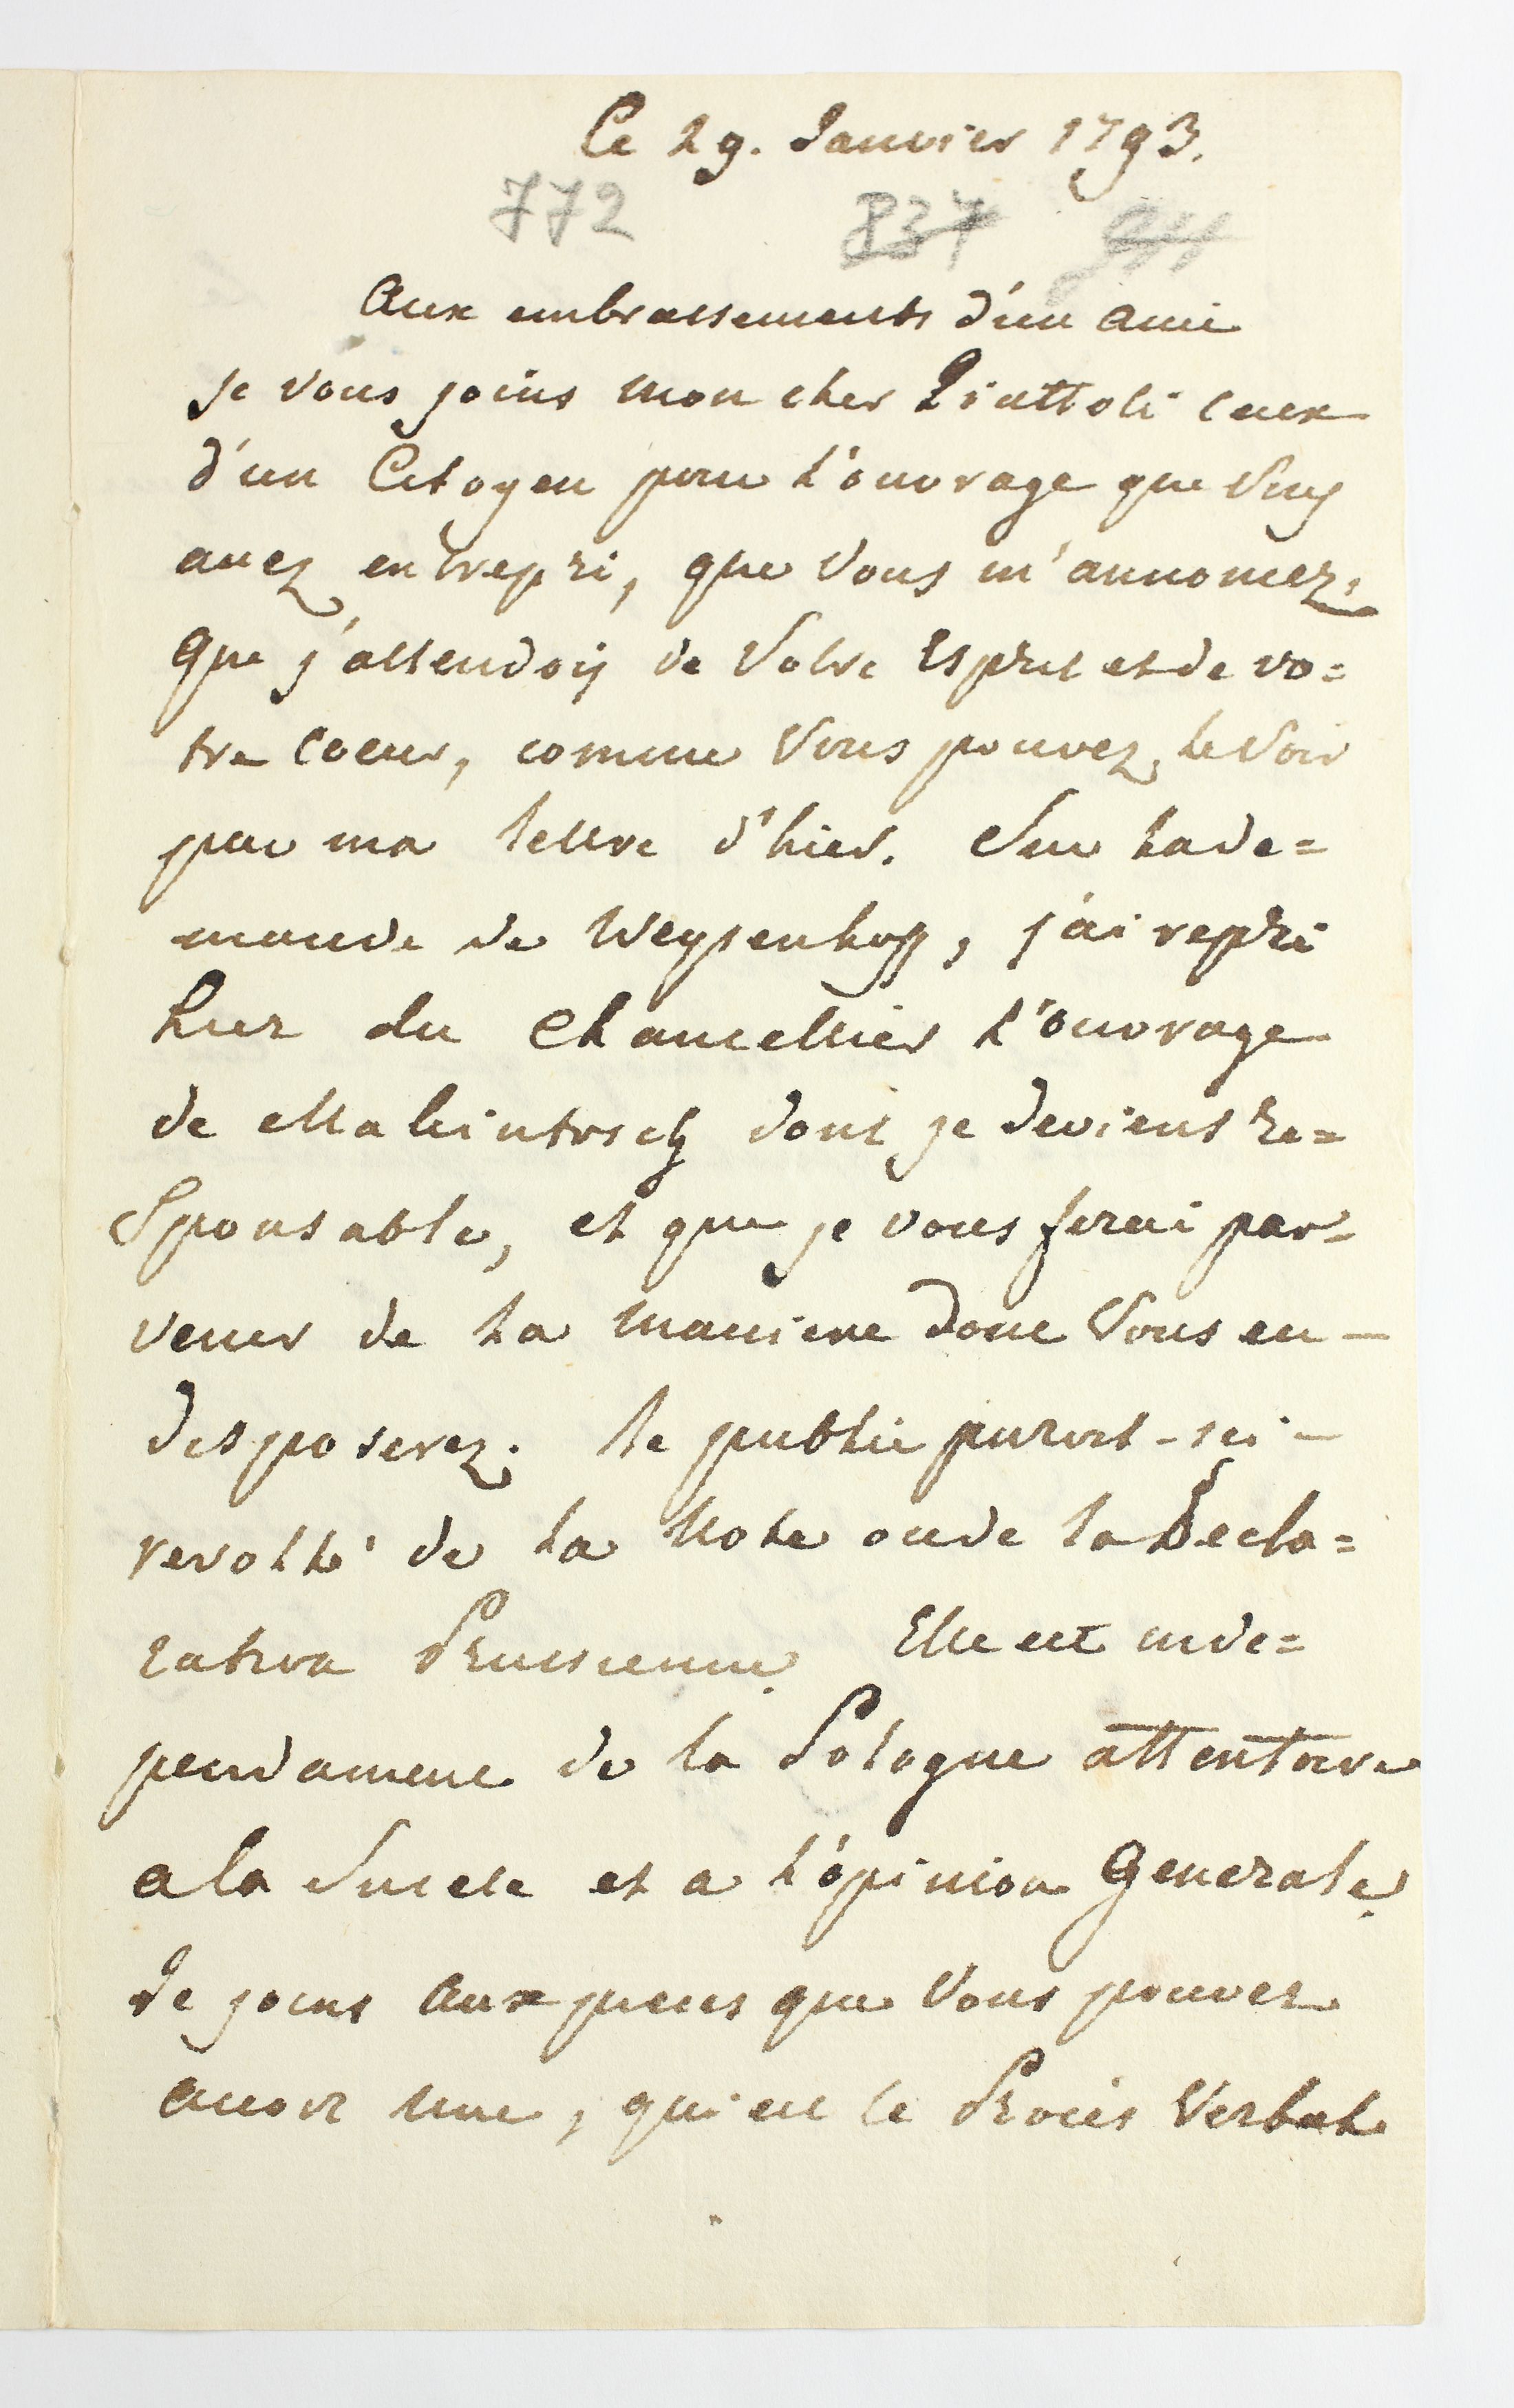 Ce 29. Janvier 1793.
772 837 944
Aux embrassements d'un ami
je vous joins mon cher Piattoli ceux
d'un Citoyen pour l'ouvrage que vous
avez entrepri, que vous m'annoncez,
que j'attendois de votre Esprit et de vo=
tre coeur, comme vous pouvez le voir
par ma lettre d'hier. Sur la de=
mande de Weyssenhoff, j'ai repri
hier du Chancellier l'ouvrage
de Makintosch dont je deviens re=
sponsable, et que je vous ferai par=
venir de la maniere dont vous en
disposerez. le public paroit-ici
revolté de la Note ou de la Decla=
ration Prussienne. Elle est inde=
pendament de la Pologne attentoire
a la Sureté et a l'opinion Generale.
Je joins aux pieces que vous pouvez
avoir une, qui est le Procès Verbal